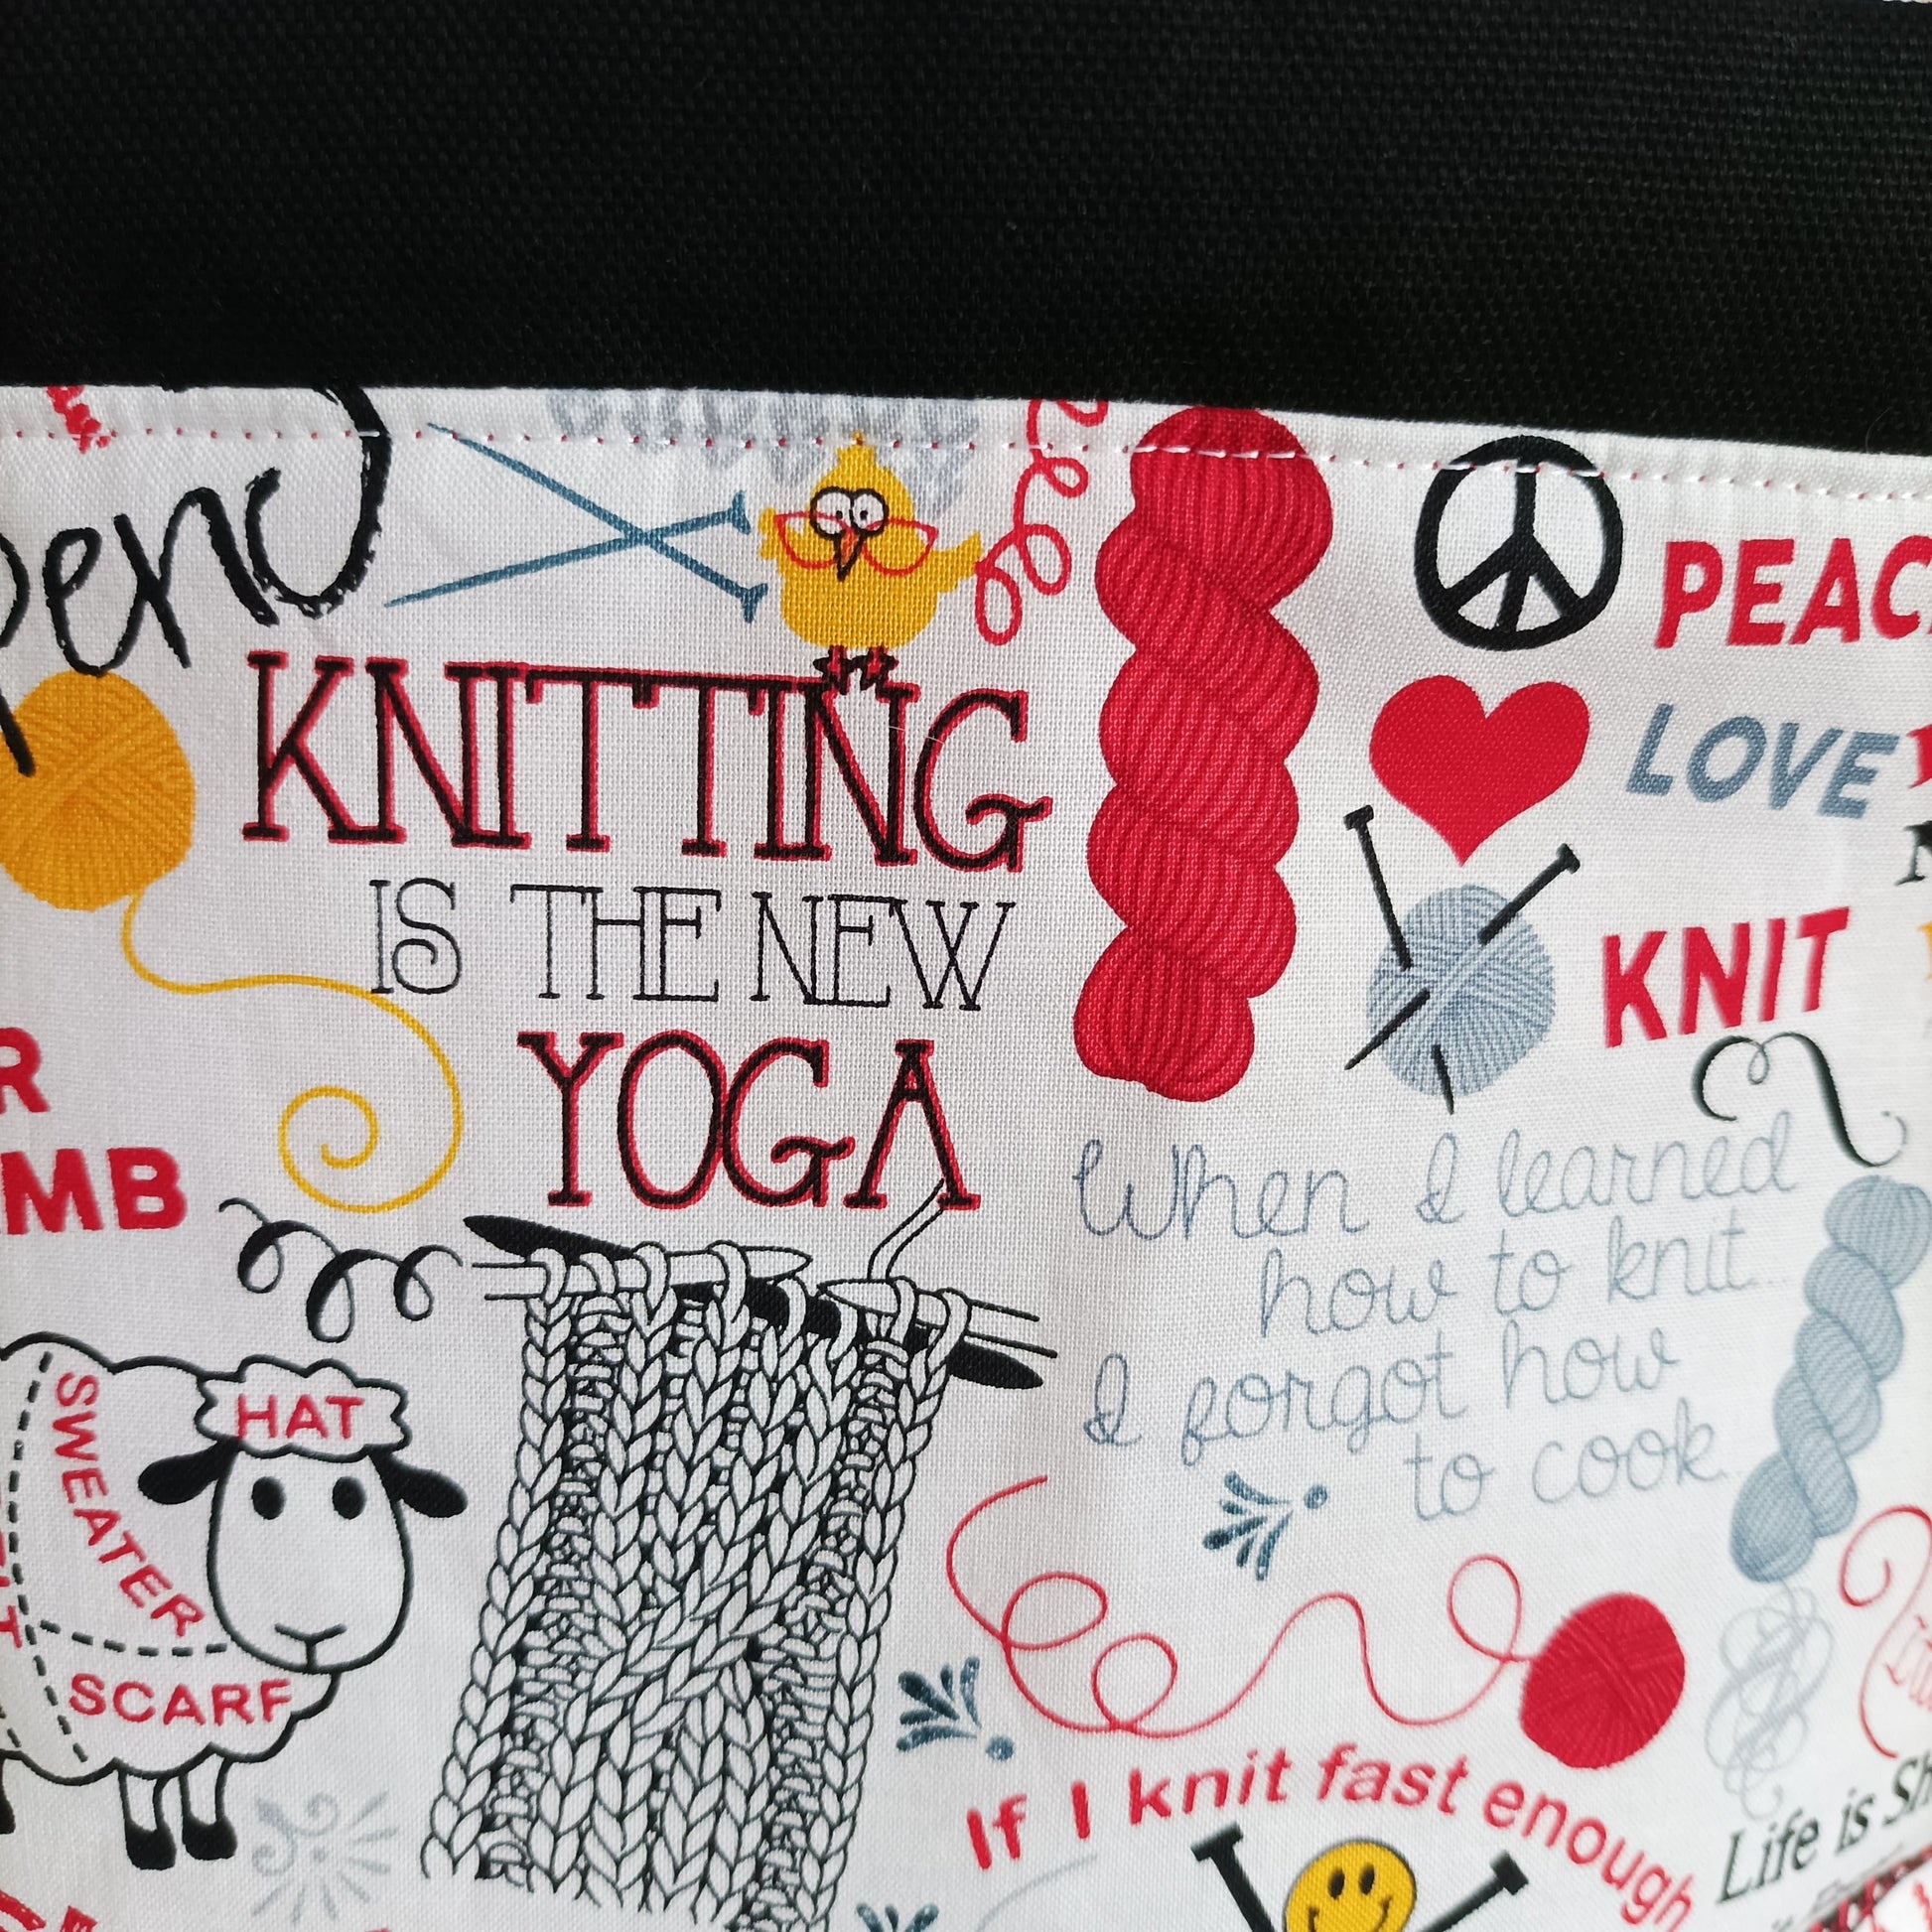 KNITTING
IS THE NEW
YOGA
PEAC
LOVE
KNIT
When I learned
how to knit
I forgot how
to cook
R
MB
HAT
SWEATER
SCARF
If I knit fast enough
Life is Sh